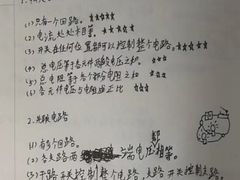 (1) 只有一个回路。☆☆☆☆
(2) 电流处处相等。☆☆☆☆
(3) 开关在任何位置都可以控制整个电路。☆☆☆☆
(4) 总电压等于各元件两端电压之和。
(5) 总电阻等于各个部分电阻之和
(6) 各元件电压与电阻成正比
2. 并联电路
(1) 有多个回路。
(2) 各支路两端电压都相等。
(3) 干路开关控制整个电路，支路开关控制支路。